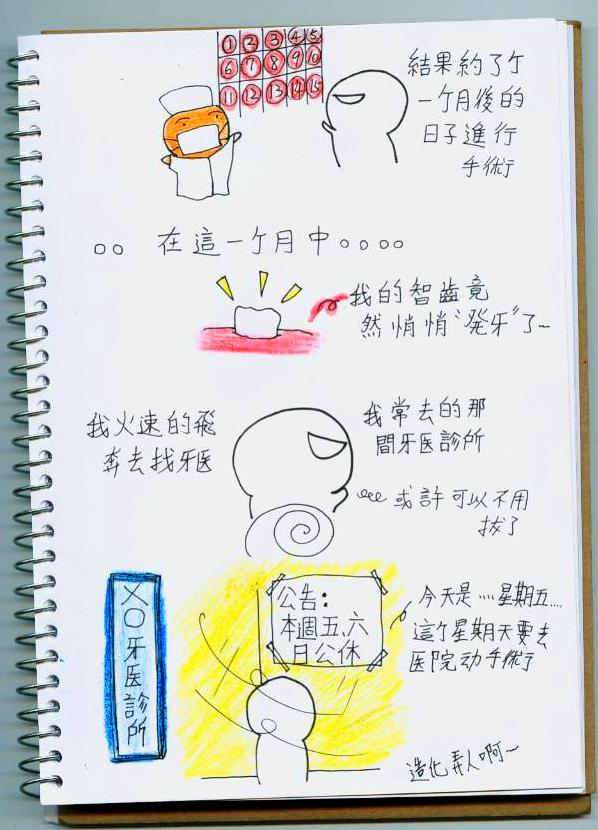 ① ② ③ ④ ⑤
⑥ ⑦ ⑧ ⑨ ⑩
⑪ ⑫ ⑬ ⑭ ⑮
結果約了个
一个月後的
日子進行
手術
在這一个月中。。。。
我的智齒竟
然悄悄“発牙”了~
我火速的飛
奔去找牙医
我常去的那
間牙医診所
或許可以不用
拔了
X〇牙医診所
公告：
本週五、六
日公休
今天是……星期五……
這个星期天要去
医院动手術
造化弄人啊~